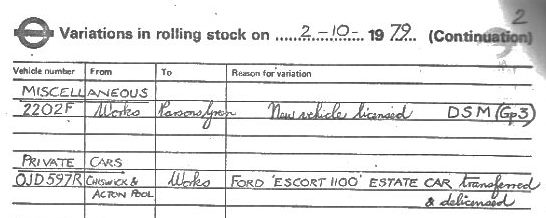 2
Variations in rolling stock on 2-10- 1979. (Continuation)
Vehicle number From To Reason for variation
MISCELLANEOUS
2202F Works Parsons Grn New vehicle licensed DSM (Gp3)
PRIVATE CARS
OJD597R CHISWICK & Works FORD 'ESCORT 1100' ESTATE CAR transferred
ACTON POOL & delicensed